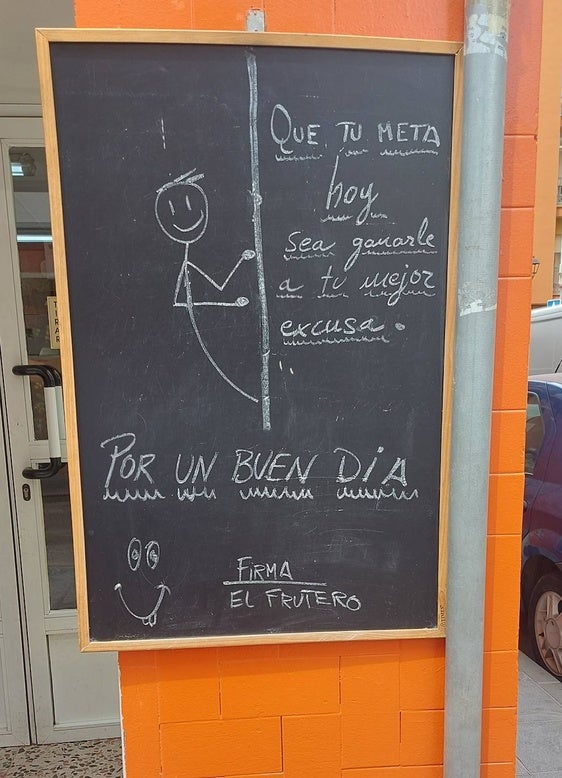 QUE TU META
hoy
sea ganarle
a tu mejor
excusa.
POR UN BUEN DiA
FIRMA
EL FRUTERO